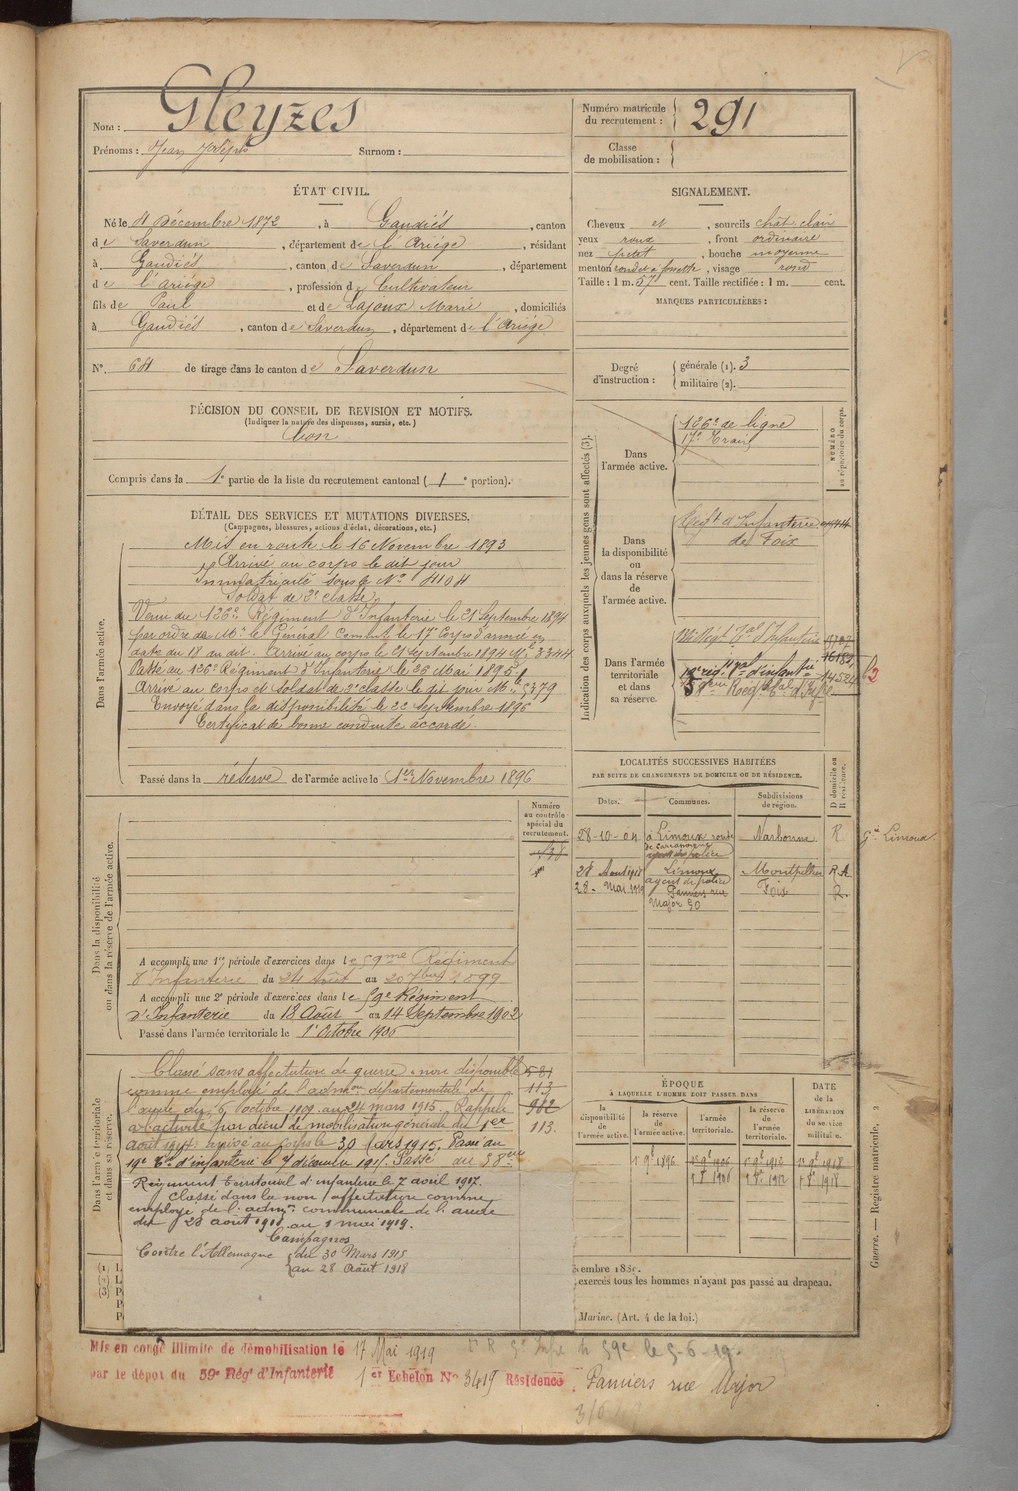 Nom : Gleyzes
Prénoms : Jean Joseph Surnom :
Numéro matricule du recrutement : 291
Classe de mobilisation :
ÉTAT CIVIL.
Né le 4 Décembre 1872, à Gaudiés, canton
de Saverdun, département de l'Ariége, résidant
à Gaudiés, canton de Saverdun, département
de l'Ariége, profession de Cultivateur
fils de Paul et de Lajoux Marie, domiciliés
à Gaudiés, canton de Saverdun, département de l'Ariége
N°. 64 de tirage dans le canton de Saverdun
SIGNALEMENT.
Cheveux et, sourcils chât. clair
yeux roux, front ordinaire
nez petit, bouche moyenne
menton rond et à fossette, visage rond
Taille : 1 m. 57 cent. Taille rectifiée : 1 m. cent.
MARQUES PARTICULIÈRES :
Degré d'instruction : générale (1). 3
militaire (2).
DÉCISION DU CONSEIL DE REVISION ET MOTIFS.
(Indiquer la nature des dispenses, sursis, etc.)
bon
Compris dans la 1e partie de la liste du recrutement cantonal (1e portion).
DÉTAIL DES SERVICES ET MUTATIONS DIVERSES.
(Campagnes, blessures, actions d'éclat, décorations, etc.)
Dans l'armée active.
Mis en route le 16 Novembre 1893
Arrivé au corps le dit jour
Immatriculé sous le N° 4104
Soldat de 2e classe
Venu du 126e Régiment d'Infanterie le 21 Septembre 1894
par ordre de Mr le Général Comdt le 17e Corps d'armée en
date du 18 au dit. Arrivé au corps le 21 Septembre 1894 No 3344
Passé au 126e Régiment d'Infanterie le 26 Mai 1895
Arrivé au corps et soldat de 2e classe le dit jour Mle 5379
Envoyé dans la disponibilité le 22 Septembre 1896
Certificat de bonne conduite accordé.
Passé dans la réserve de l'armée active le 1er Novembre 1896
Indication des corps auxquels les jeunes gens sont affectés (3).
NUMÉRO au répertoire du corps.
Dans l'armée active.
126e de ligne
17e Train
Dans la disponibilité ou dans la réserve de l'armée active.
Régt d'Infanterie
de Foix
Dans l'armée territoriale et dans sa réserve.
LOCALITÉS SUCCESSIVES HABITÉES
PAR SUITE DE CHANGEMENTS DE DOMICILE OU DE RÉSIDENCE.
Dates. Communes. Subdivisions de région. D domicile ou R résidence.
28-10-04 à Limoux route de Carcassonne Narbonne R
Gie Limoux
28 Août 1918 Limoux agent de police Montpellier
28 Mai 1919 Pamiers rue Major 30 Foix R.
Dans la disponibilité ou dans la réserve de l'armée active.
Numéro au contrôle spécial du recrutement.
A accompli une 1re période d'exercices dans le 59me Régiment
d'Infanterie du 24 Août au 20 7bre 1899
A accompli une 2e période d'exercices dans le 59e Régiment
d'Infanterie du 18 Août au 14 Septembre 1902
Passé dans l'armée territoriale le 1er Octobre 1906
Dans l'armée territoriale et dans sa réserve.
Classé sans affectation de guerre "non disponible" 581
comme employé de l'admon départementale de 113
l'aude du 6 octobre 1909 au 24 mars 1915. Rappelé 982
à l'activité par décret de mobilisation générale du 1er 113.
août 1914 arrivé au corps le 30 Mars 1915. Passé au
19e Ter d'infanterie le 7 décembre 1915. Passé au 58eme
Régiment territorial d'infanterie le 7 avril 1917.
Classé dans la non affectation comme
employé de l'admon communale de l'aude
du 28 août 1918 au 1 mai 1919.
Campagnes
Contre l'Allemagne du 30 Mars 1915
au 28 Août 1918
ÉPOQUE
À LAQUELLE L'HOMME DOIT PASSER DANS
la disponibilité de l'armée active. la réserve de l'armée active. l'armée territoriale. la réserve de l'armée territoriale.
DATE de la LIBÉRATION du service militaire.
1er 9bre 1896 1er 9bre 1906 1er 9bre 1912 1er 9bre 1918
exercés tous les hommes n'ayant pas passé au drapeau.
Marine. (Art. 4 de la loi.)
Guerre. — Registre matricule, 2
Mis en congé illimité de démobilisation le 17 Mai 1919
par le dépot du 59e Régt d'Infanterie 1er Echelon No 3419 Résidence, Pamiers rue Major